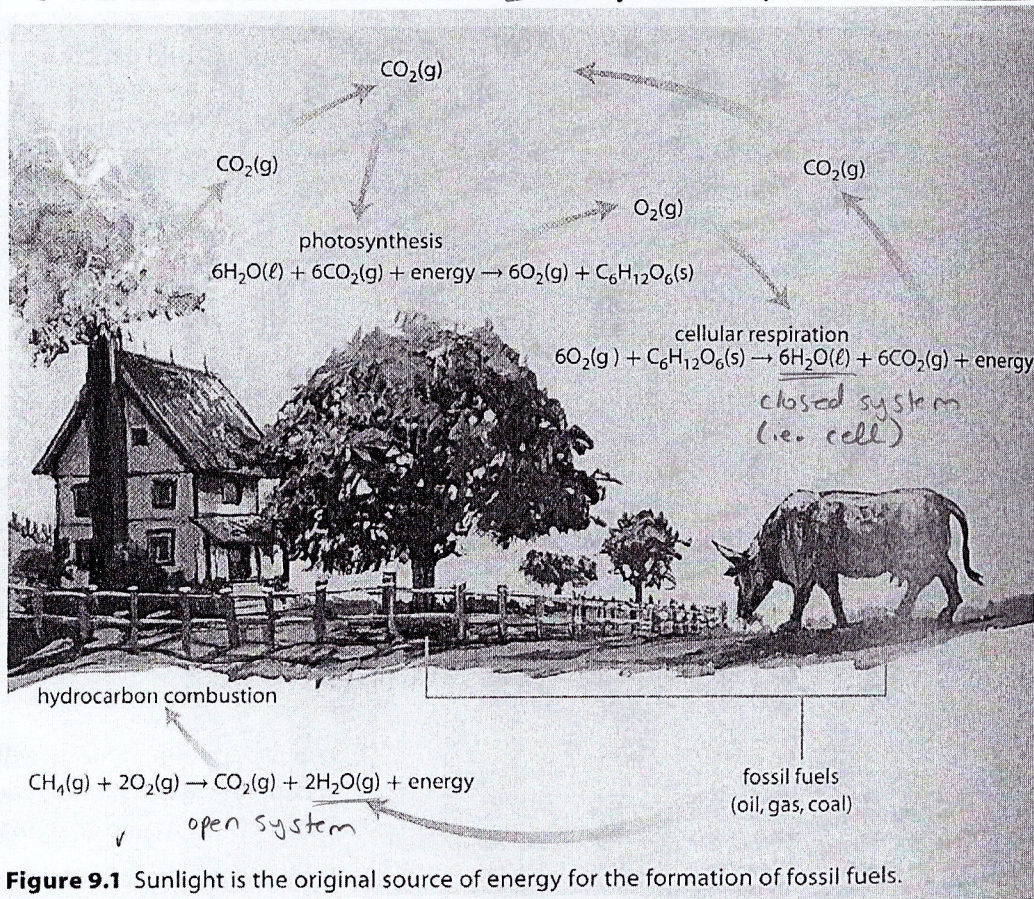 CO₂(g)
CO₂(g)
CO₂(g)
O₂(g)
photosynthesis
6H₂O(ℓ) + 6CO₂(g) + energy → 6O₂(g) + C₆H₁₂O₆(s)
cellular respiration
6O₂(g) + C₆H₁₂O₆(s) → 6H₂O(ℓ) + 6CO₂(g) + energy
closed system
(i.e. cell)
hydrocarbon combustion
CH₄(g) + 2O₂(g) → CO₂(g) + 2H₂O(g) + energy
open system
fossil fuels
(oil, gas, coal)
Figure 9.1 Sunlight is the original source of energy for the formation of fossil fuels.